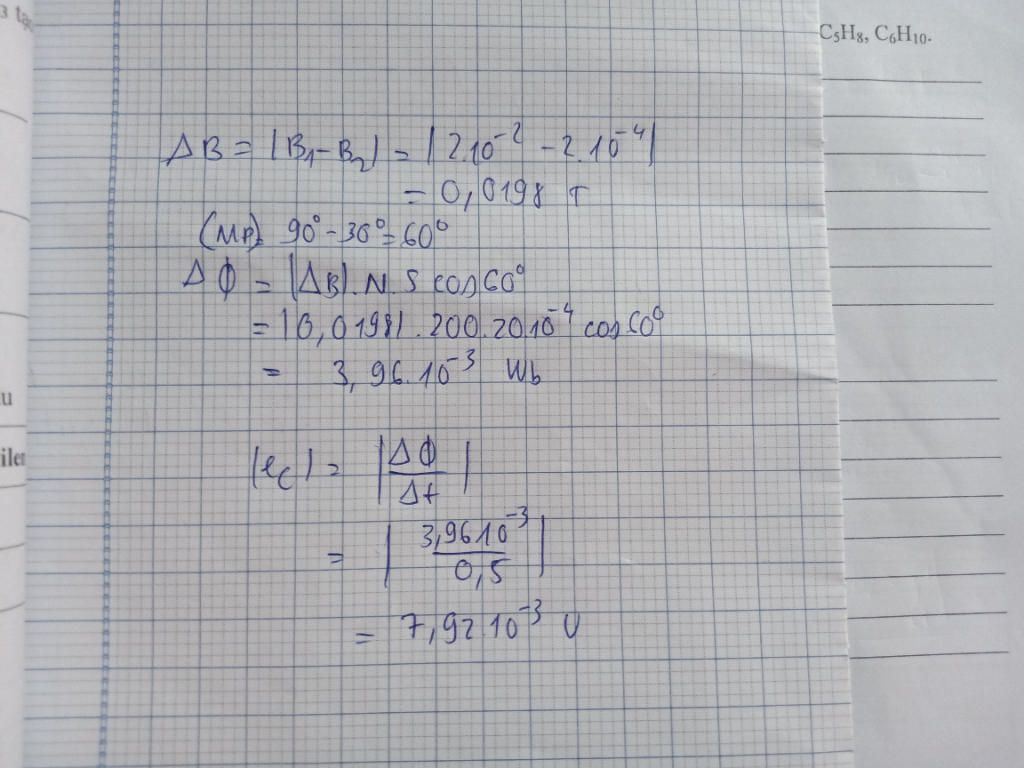 C₅H₈, C₆H₁₀.
ΔB = |B₁ - B₂| = |2.10⁻² - 2.10⁻⁴|
= 0,0198 T
(MP) = 90° - 30° = 60°
ΔΦ = |ΔB|.N.S cos60°
= |0,0198|.200.20 10⁻⁴ cos60°
= 3,96.10⁻³ Wb
|eC| = |ΔΦ/Δt|
= |3,96 10⁻³/0,5|
= 7,92 10⁻³ V